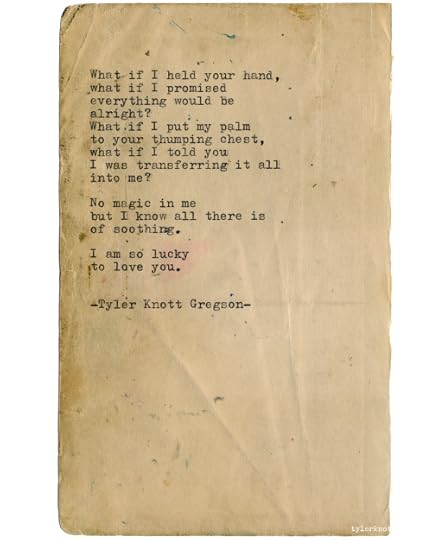 What if I held your hand,
what if I promised
everything would be
alright?
What if I put my palm
to your thumping chest,
what if I told you
I was transferring it all
into me?
No magic in me
but I know all there is
of soothing.
I am so lucky
to love you.
-Tyler Knott Gregson-